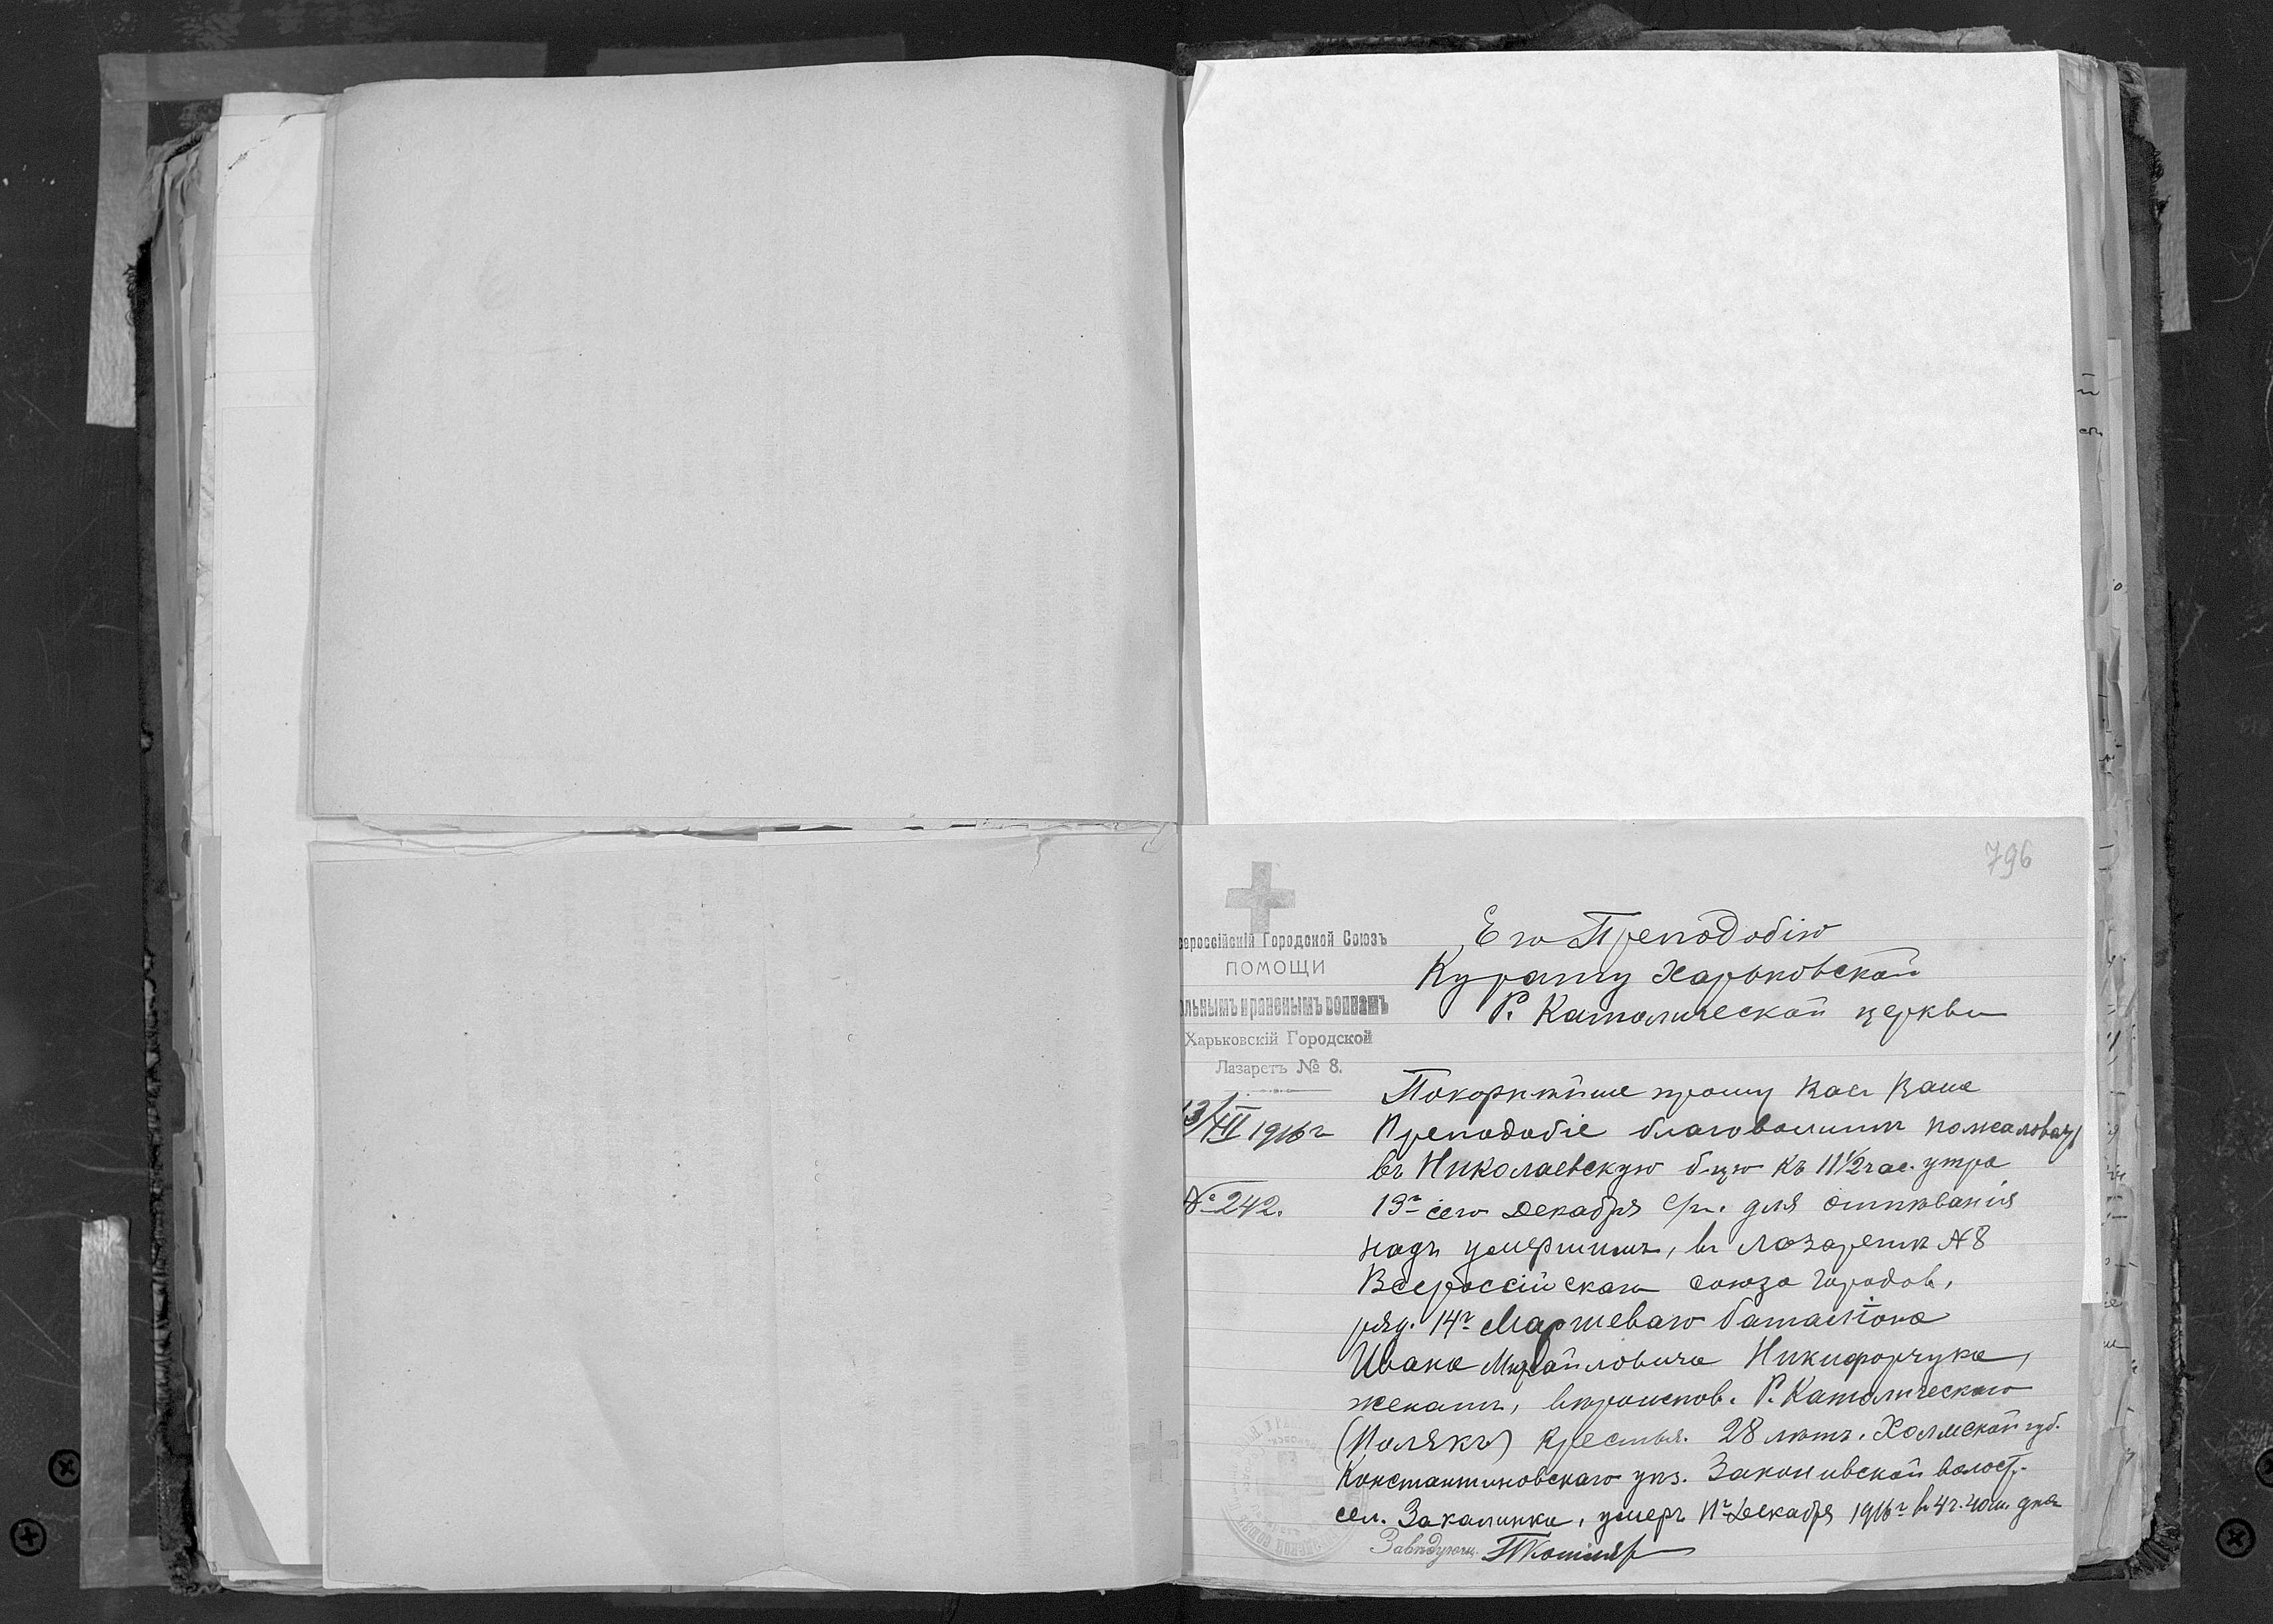 796
сероссійскій Городской Союзъ
ПОМОЩИ
ольнымъ и раненымъ воинамъ
Харьковскій Городской
Лазаретъ № 8.
13/XII 1916 г
№ 242.
Его Преподобію
Курату Харьковской
Р. Католической церкви
Покорнѣйше прошу Васъ Ваше
Преподобіе благоволить пожаловать
въ Николаевскую б-цу къ 11½ час. утра
13го сего Декабря с/г. для отпѣванія
надъ умершимъ, въ лазаретѣ № 8
Всероссійскаго союза городов,
ряд. 14го Маршеваго баталіона
Ивана Михайловича Никифорчука,
женатъ, вѣроисповѣ. Р. Католическаго
(Полякъ) крестья. 28 лѣтъ. Холмской губ.
Константиновскаго уѣз. Закон ивской волост.
сел. Закалинки, умеръ 11го Декабря 1916 г в 4 ч. 40 м. дня
Завѣдующ.